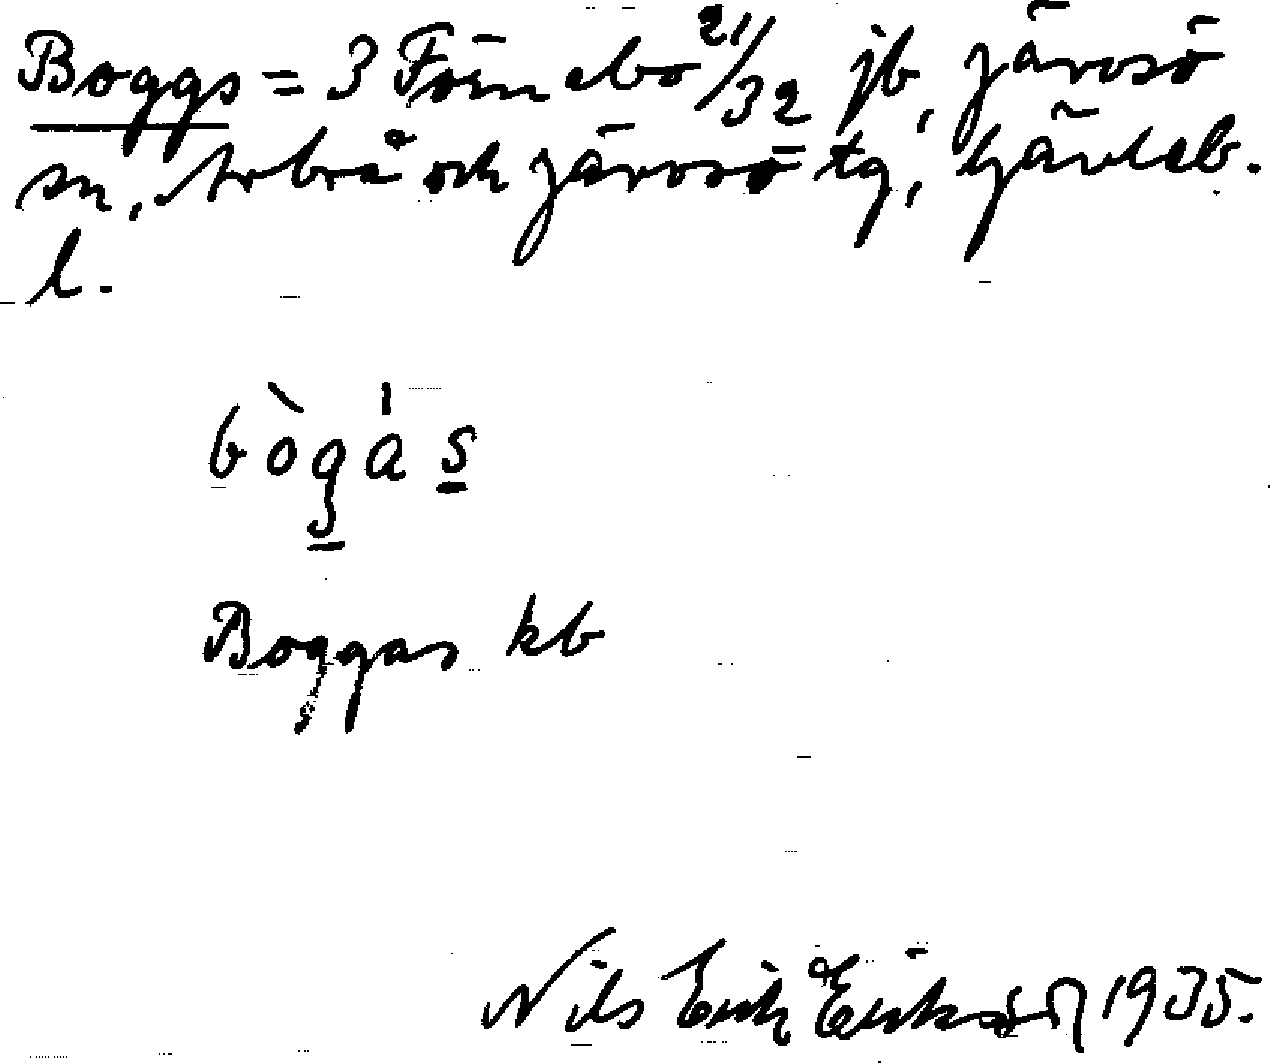 Boggs = 3 Föne åbo 21/32 jb, Järvsö
sn, Arbrå och Järvsö tg, Gävleb.
l.
bògás
Boggas kb
Nils Erik Eriksson 1935.